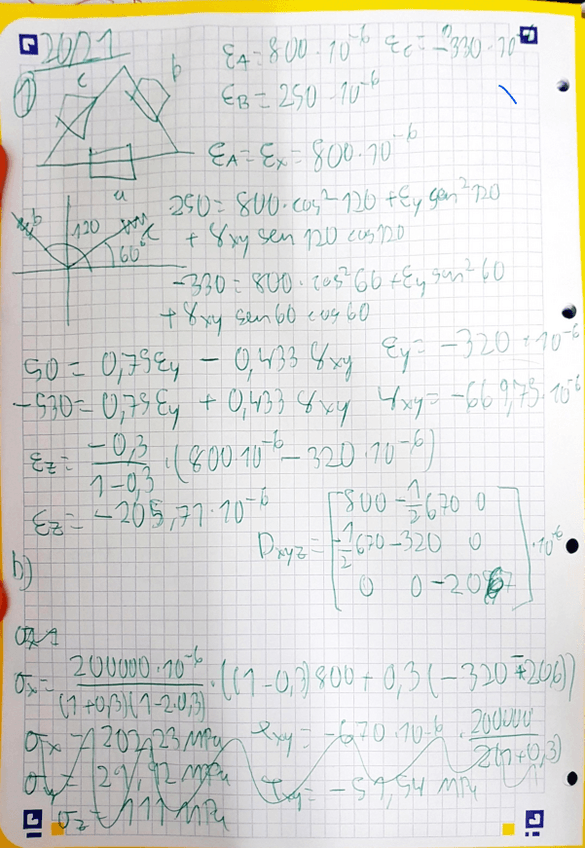 2021
1
c
b
a
ε_A = 800 · 10^-6 ε_C = -330 · 10
ε_B = 250 · 10^-6
ε_A = ε_x = 800 · 10^-6
b 120 c 60°
250 = 800 · cos² 120 + ε_y sen² 120
+ γ_xy sen 120 cos 120
-330 = 800 · cos² 60 + ε_y sen² 60
+ γ_xy sen 60 cos 60
50 = 0,75 ε_y - 0,433 γ_xy ε_y = -320 · 10^-6
-530 = 0,75 ε_y + 0,433 γ_xy γ_xy = -669,75 · 10^-6
ε_z = -0,3 / 1-0,3 · (800 · 10^-6 - 320 · 10^-6)
ε_z = -205,71 · 10^-6
D_xyz = [ 800 -1/2 670 0
-1/2 670 -320 0
0 0 -206 ] · 10^-6
b)
σ_x = 200000 · 10^-6 / (1+0,3)(1-2·0,3) · ((1-0,3) 800 + 0,3 (-320 - 206))
σ_x = 202,23 MPa τ_xy = -670 · 10^-6 · 200000 / 2(1+0,3)
MPa τ_xy = -51,54 MPa
σ_z = MPa